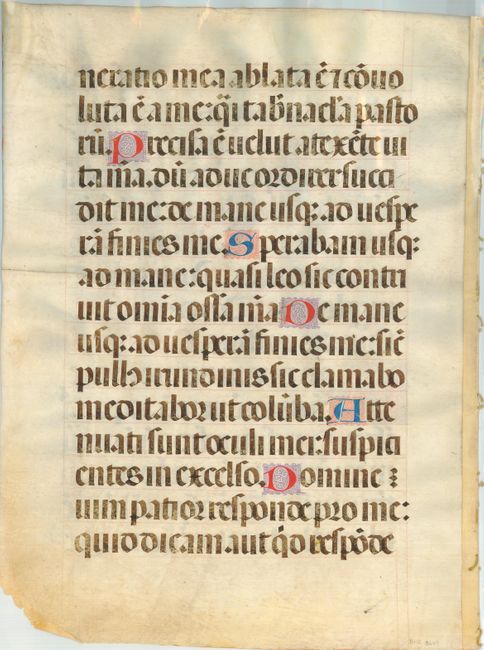 neratio mea ablata ē ⁊ cōuo
luta ē a me: q̄i tab̄nacl̄a pasto
rū. Precisa ē uelut a texēte ui
ta m̄a. dū adhuc ordirer succi
dit me: de mane usq; ad uespe
rā finies me. Sperabam usq;
ad mane: quasi leo sic contri
uit om̄ia ossa m̄a De mane
usq; ad uesperā finies me: sic̄
pull's irundinis sic clamabo
meditabor ut colūba. Atte
nuati sunt oculi mei: suspici
entes in excelso. Domine
uim patior responde pro me:
quid dicam aut q̄d respōde